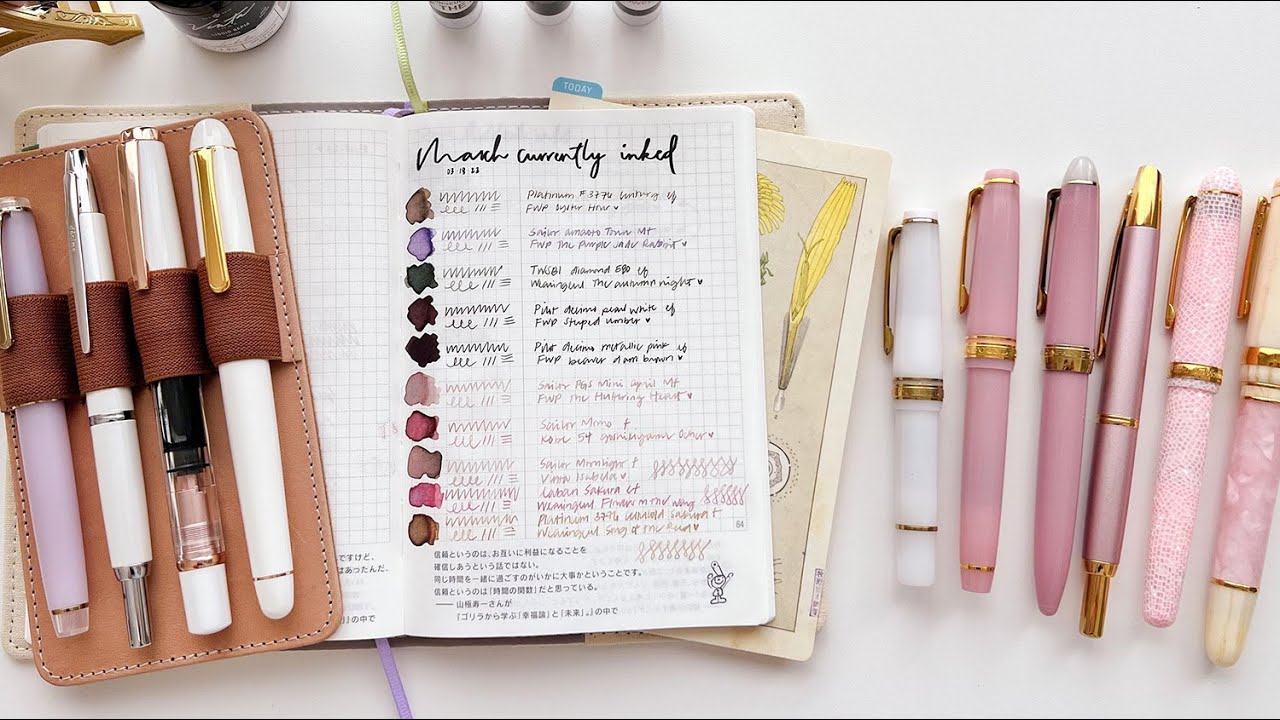 THE
TODAY
March currently inked
03 18 23
Platinum #3776 century ef
FWP Oyster Hour ♥
Sailor Mf
FWP The Purple Jade Rabbit ♥
TWSBI diamond 580 ef
Wearingeul The autumn night ♥
Pilot decimo pearl white ef
FWP Striped umber ♥
Pilot decimo metallic pink ef
FWP beaver dam brown ♥
Sailor PGS Mini April Mf
FWP The Fluttering Heart ♥
Sailor Momo f
Kobe 54 ♥
Sailor Moonlight f
Vinta Isabela ♥
Laban Sakura ef
Wearingeul Flower in the wing
Platinum 3776 celluloid Sakura f
Wearingeul Song of the Red ♥
64
信頼というのは、お互いに利益になることを
確信しあうという話ではない。
同じ時間を一緒に過ごすのがいかに大事かということです。
信頼というのは「時間の関数」だと思っている。
――山極寿一さんが
『ゴリラから学ぶ「幸福論」と「未来」。』の中で
ですけど、
はあったんだ、
』の中で